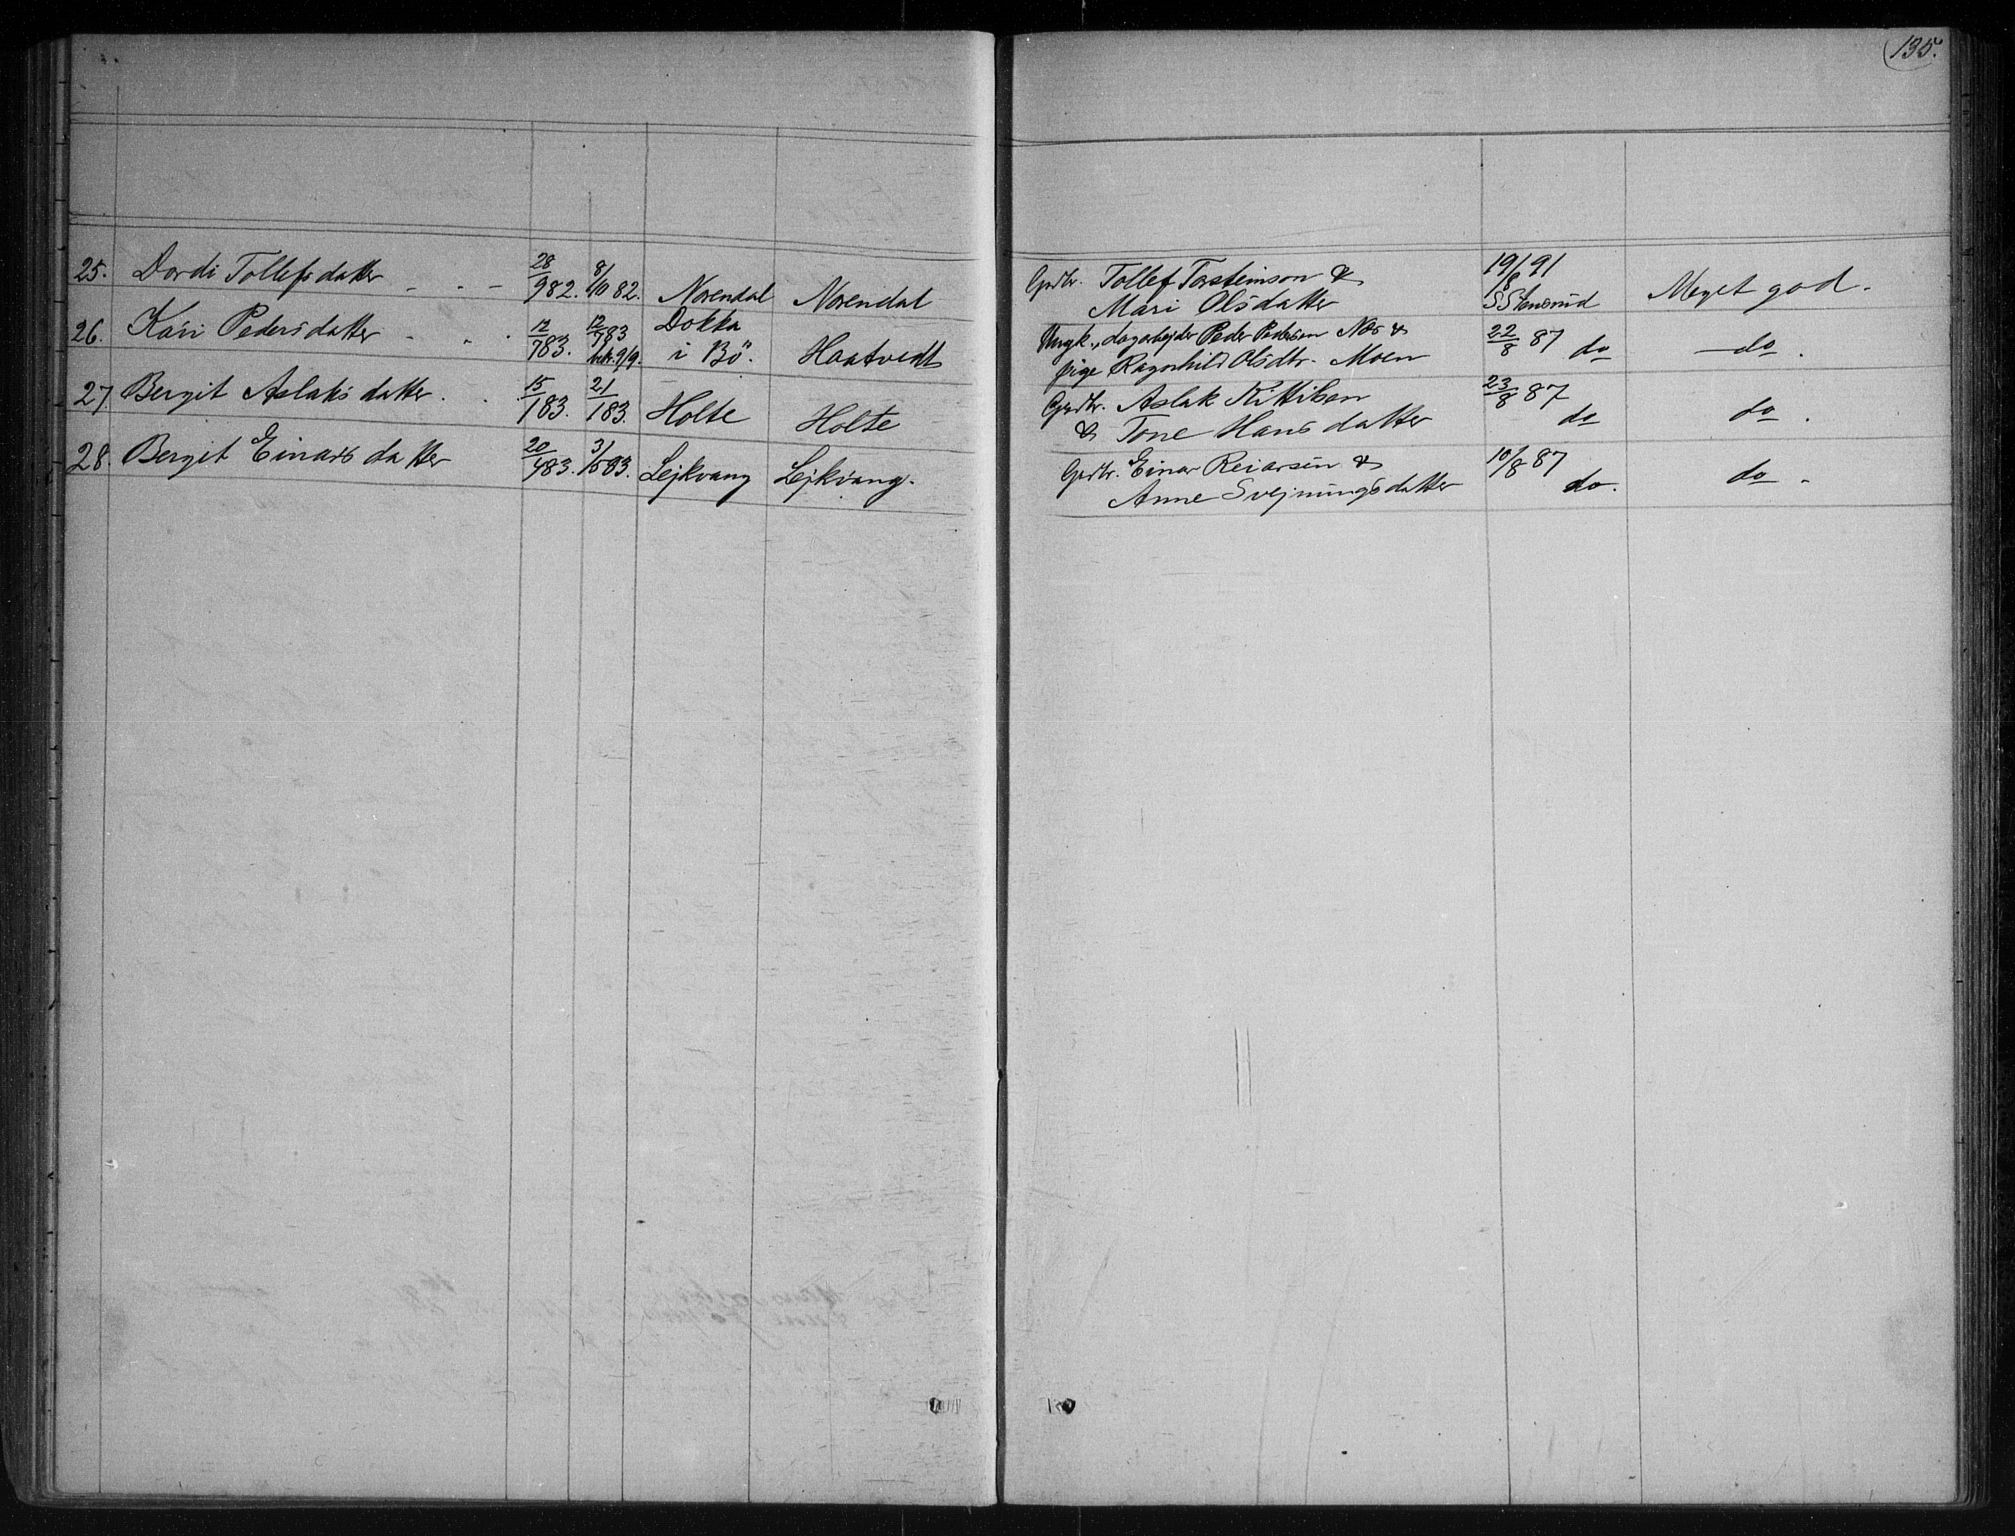 135.
25. Dordi Tollefsdatter 28/9 82. 8/10 82. Norendal Norendal
Gbrbr. Tollef Torsteinson &
Mari Olsdatter
19/8 91
S Stensrud
Meget god.
26. Kari Pedersdatter 12/7 83. 12/7 83
bek. 9/9.
Dokka
i Bö.
Haatvedt
Ungk., dagarbejder Peder Pedersen Næs &
pige Ragnhild Olsdtr. Moen
22/8 87
do
do.
27. Bergit Aslaksdatter. 15/1 83. 21/1 83. Holte Holte
Gbrbr. Aslak Kittilsen
& Tone Hansdatter
23/8 87
do
do.
28. Bergit Einarsdatter 20/4 83. 3/5 83. Lejkvang Lejkvang.
Gbrbr. Einar Reiarsen &
Anne Svejnungsdatter
10/8 87
do.
do.